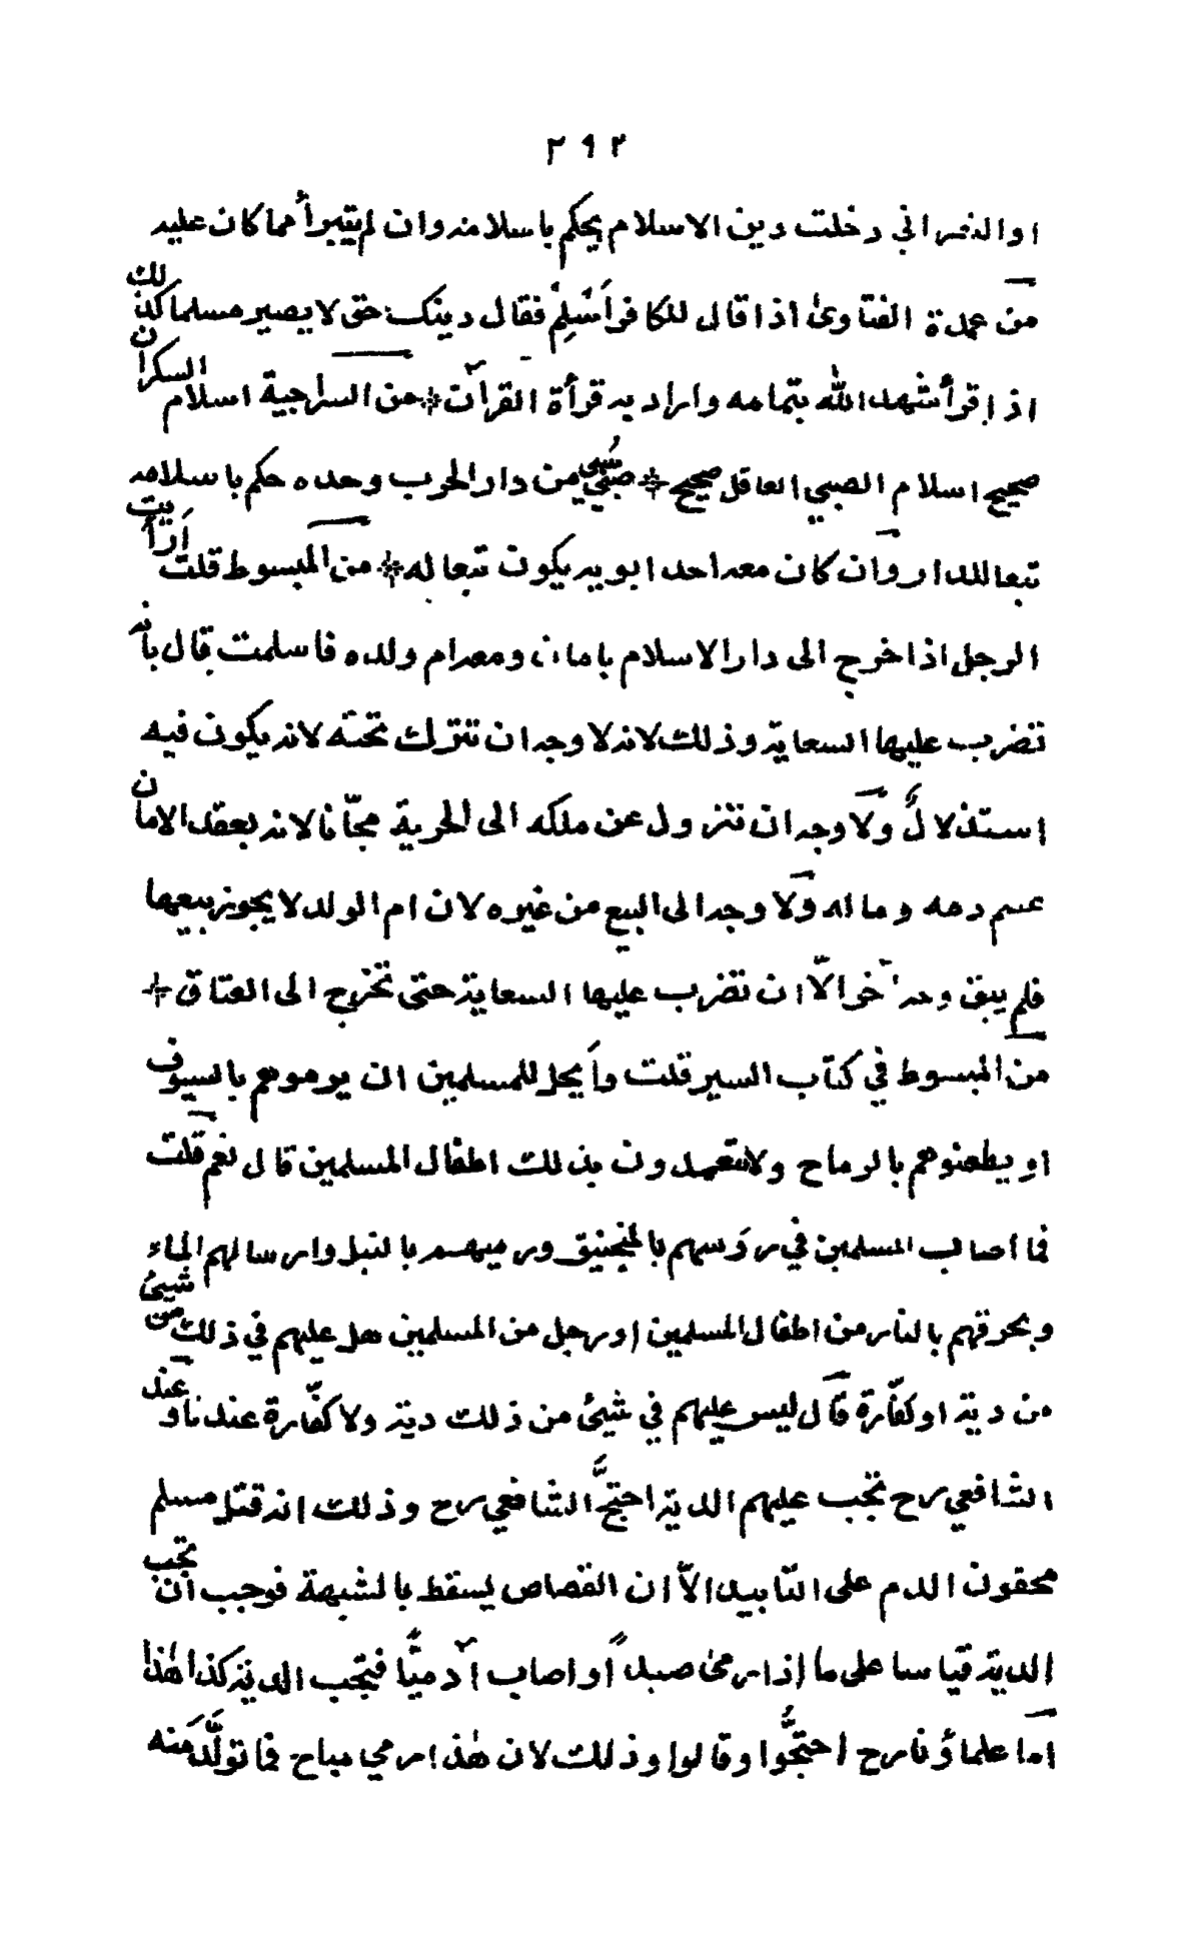 ٢٩٢
او النصراني دخلت دين الاسلام يحكم باسلامه وان لم يتبرأ مما كان عليه
من عمدة الفتاوىٰ اذا قال للكافر أَسْلِمْ فقال دينك حق لا يصير مسلما كذلك
اذا قرأ شهد الله بتمامه واراد به قرأة القرآن * من السراجية اسلام السكران
صحيح اسلام الصبي العاقل صحيح * صبي سُبي من دار الحرب وحده حكم باسلامه
تبعا للدار وان كان معه احد ابويه يكون تبعا له * من المبسوط قلت أرأيت
الرجل اذا خرج الى دار الاسلام بامان ومعه ام ولده فاسلمت قال بأنه
تضرب عليها السعاية وذلك لانه لا وجه ان تترك تحته لانه يكون فيه
استذلالٌ ولا وجه ان تزول عن ملكه الى الحرية مجّانا لانه بعقد الامان
عصم دمه وماله ولا وجه الى البيع من غيره لان ام الولد لا يجوز بيعها
فلم يبق وجه آخر الّا ان تضرب عليها السعاية حتى تخرج الى العتاق *
من المبسوط في كتاب السير قلت وأيحل للمسلمين ان يرموهم بالسيوف
او يطعنوهم بالرماح ولا يتعمدون بذلك اطفال المسلمين قال نعم قلت
فما أصاب المسلمين في رؤسهم بالمنجنيق ورميهم بالنبل وارسالهم الماء
وبحرقهم بالنار من اطفال المسلمين او رجل من المسلمين هل عليهم في ذلك شيئ من
من دية او كفّارة قال ليس عليهم في شيئ من ذلك دية ولا كفّارة عندنا وعند
الشافعي رح تجب عليهم الدية احتجَّ الشافعي رح وذلك انه قتل مسلم
محقون الدم على التأبيد الّا ان القصاص يسقط بالشبهة فوجب أن تجب
الدية قياسا على ما إذا رمىٰ صيداً أو اصاب آدميًّا فيتجب الدية كذا هٰذا
اما علماؤنا رح احتجُّوا وقالوا وذلك لان هٰذا رمي مباح فما تولَّد منه